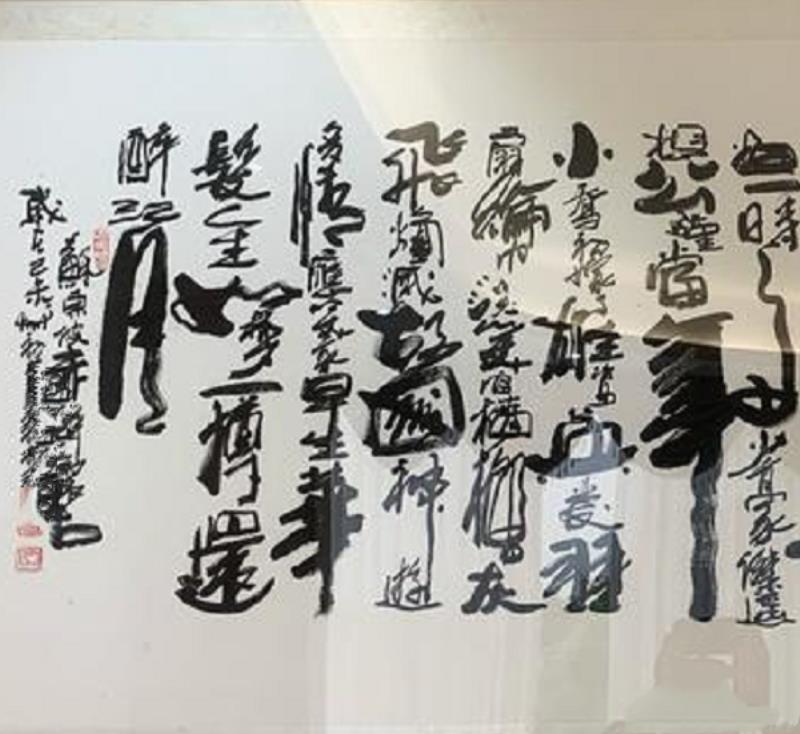 畫一時多少豪傑遥
想公瑾當年
小喬初嫁了雄姿英發羽
扇綸巾談笑間檣櫓灰
飛煙滅故國神遊
多情應笑我早生華
髮人生如夢一樽還
酹江月
蘇東坡赤壁